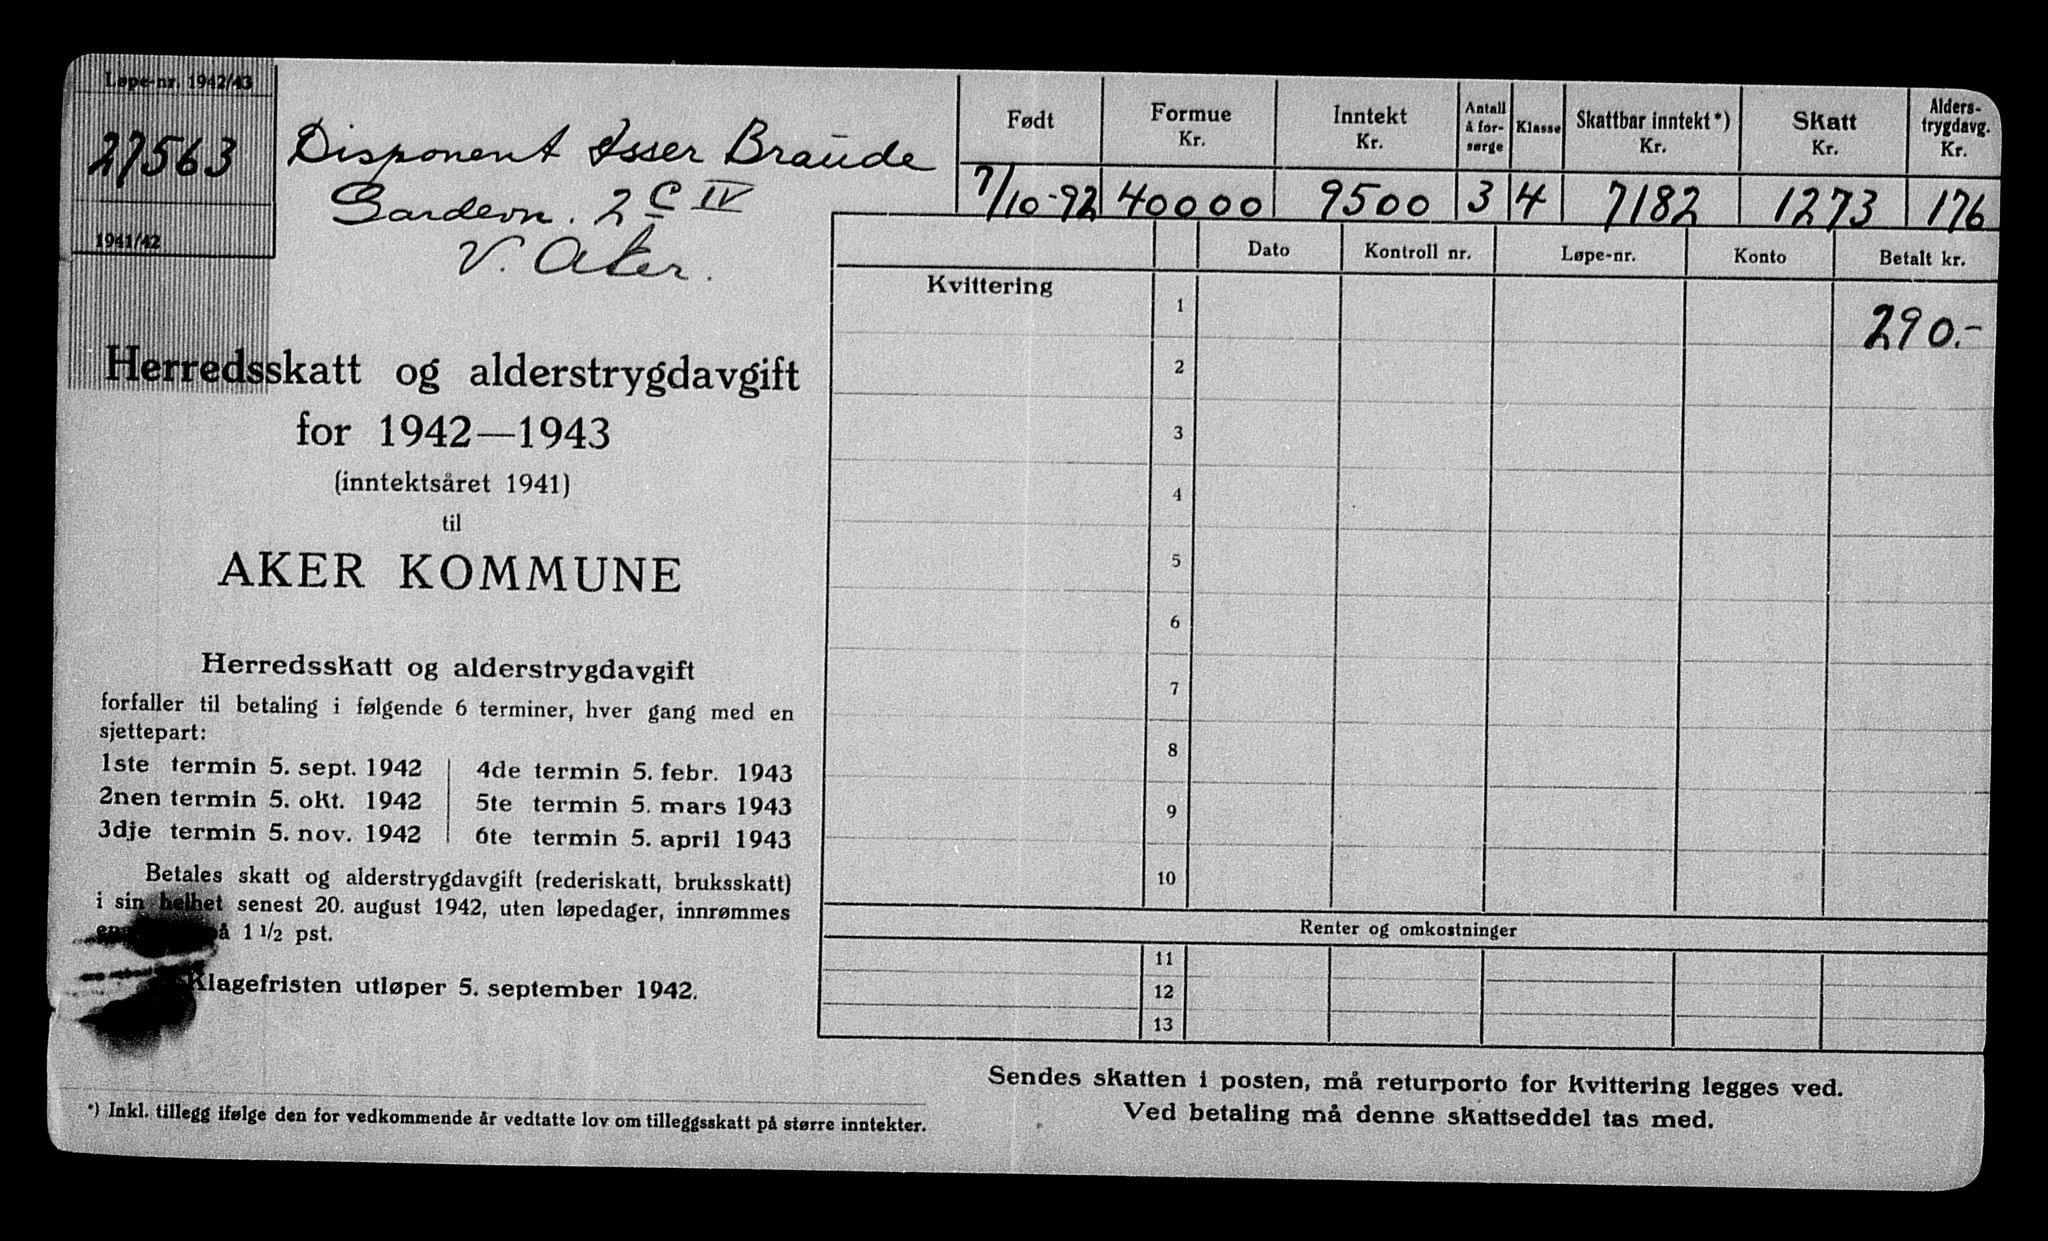 Løpe-nr. 1942/43
27563
1941/42
Disponent Isser Braude
Gardevn. 2 C IV
V. Aker.
Født
Formue Kr.
Inntekt Kr.
Antall å for-sørge
Klasse
Skattbar inntekt*) Kr.
Skatt Kr.
Alders-trygdavg. Kr.
7/10-92 40000 9500 3 4 7182 1273 176
Dato Kontroll nr. Løpe-nr. Konto Betalt kr.
Kvittering
1 290.-
2
3
4
5
6
7
8
9
10
Renter og omkostninger
11
12
13
Herredsskatt og alderstrygdavgift
for 1942—1943
(inntektsåret 1941)
til
AKER KOMMUNE
Herredsskatt og alderstrygdavgift
forfaller til betaling i følgende 6 terminer, hver gang med en
sjettepart:
1ste termin 5. sept. 1942 4de termin 5. febr. 1943
2nen termin 5. okt. 1942 5te termin 5. mars 1943
3dje termin 5. nov. 1942 6te termin 5. april 1943
Betales skatt og alderstrygdavgift (rederiskatt, bruksskatt)
i sin helhet senest 20. august 1942, uten løpedager, innrømmes
å 1 1/2 pst.
Klagefristen utløper 5. september 1942.
*) Inkl. tillegg ifølge den for vedkommende år vedtatte lov om tilleggsskatt på større inntekter.
Sendes skatten i posten, må returporto for kvittering legges ved.
Ved betaling må denne skattseddel tas med.